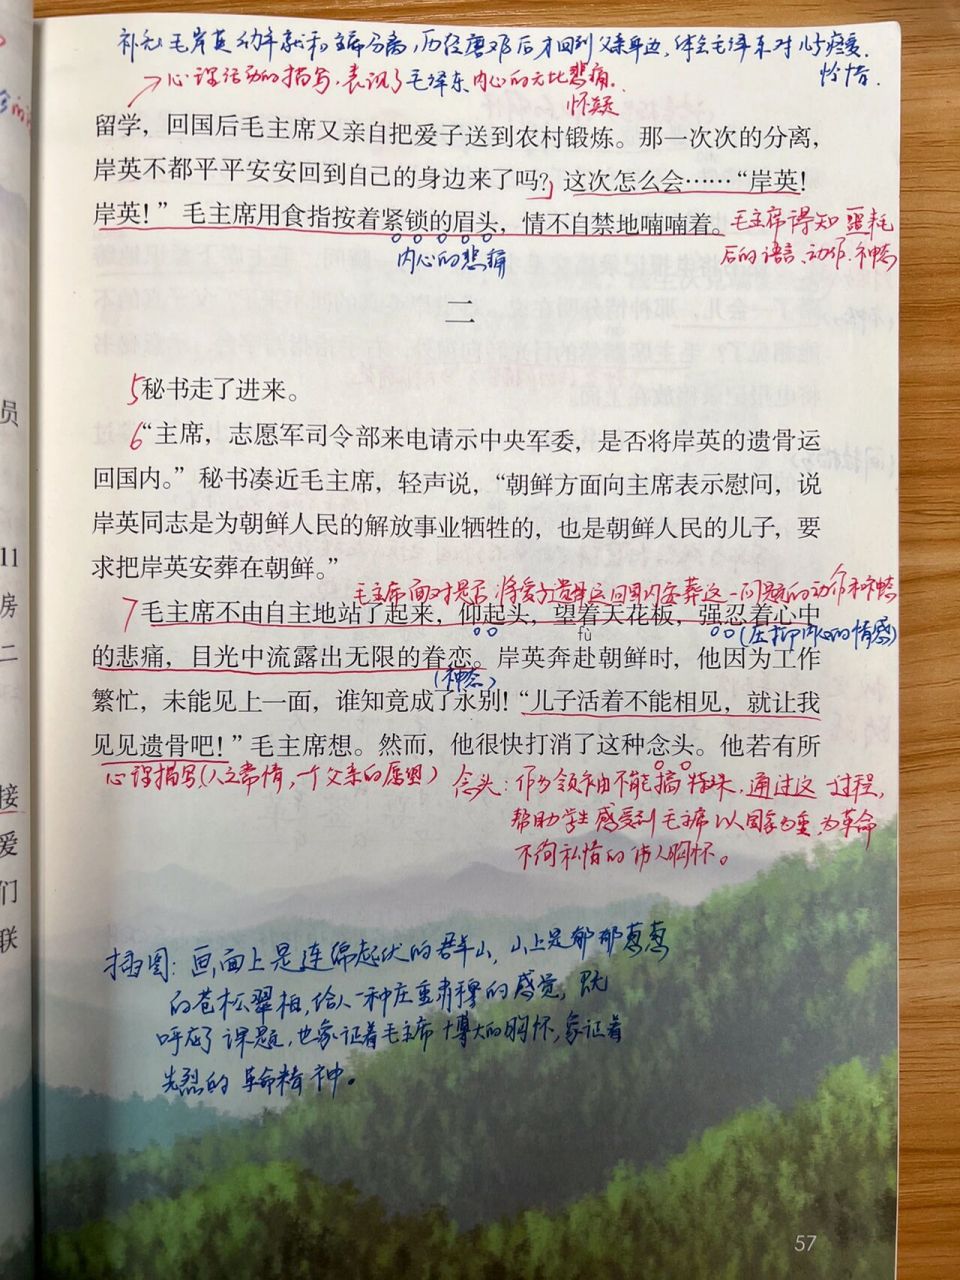 补充:毛岸英幼年就和主席分离,历经磨难后才回到父亲身边,体会毛泽东对儿子疼爱、
怜惜.
心理活动的描写,表现了毛泽东内心的无比悲痛.
怀疑
留学，回国后毛主席又亲自把爱子送到农村锻炼。那一次次的分离，
岸英不都平平安安回到自己的身边来了吗？这次怎么会……“岸英！
岸英！”毛主席用食指按着紧锁的眉头，情不自禁地喃喃着。
毛主席得知噩耗
后的语言、动作、神态
内心的悲痛
二
5秘书走了进来。
6“主席，志愿军司令部来电请示中央军委，是否将岸英的遗骨运
回国内。”秘书凑近毛主席，轻声说，“朝鲜方面向主席表示慰问，说
岸英同志是为朝鲜人民的解放事业牺牲的，也是朝鲜人民的儿子，要
求把岸英安葬在朝鲜。”
毛主席面对是否将爱子遗骨运回国内安葬这一问题的动作和神态
7毛主席不由自主地站了起来，仰起头，望着天花板，强忍着心中
(压抑内心的情感)
fù
的悲痛，目光中流露出无限的眷恋。岸英奔赴朝鲜时，他因为工作
(神态)
繁忙，未能见上一面，谁知竟成了永别！“儿子活着不能相见，就让我
见见遗骨吧！”毛主席想。然而，他很快打消了这种念头。他若有所
心理描写(人之常情,一个父亲的愿望)
念头:作为领袖不能搞特殊.通过这一过程,
帮助学生感受到毛主席以国家为重,为革命
不徇私情的伟人胸怀。
插图:画面上是连绵起伏的群山,山上是郁郁葱葱
的苍松翠柏,给人一种庄重肃穆的感觉,既
呼应了课题,也象证着毛主席博大的胸怀,象证着
先烈的革命精神。
57
员
11
房
二
接
爱
们
联